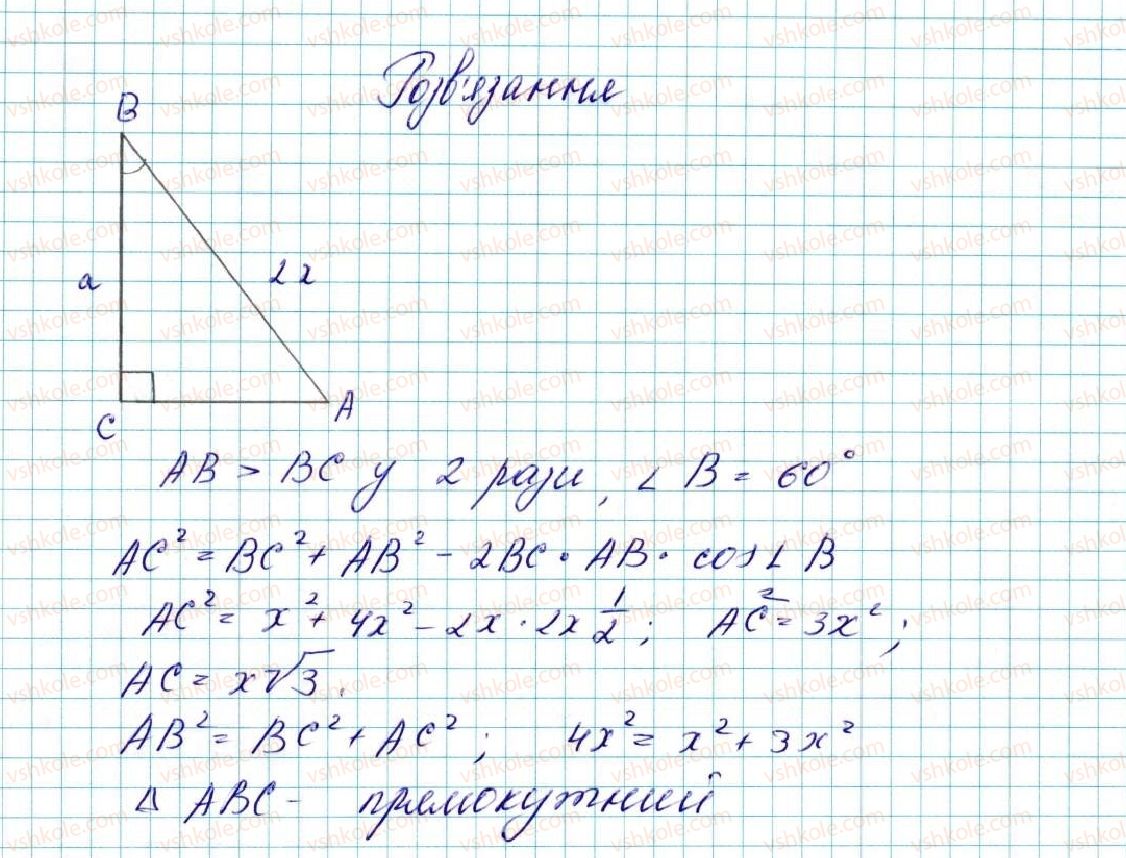 Розв'язання
B
a
2x
C
A
AB > BC у 2 рази, ∠B = 60°
AC² = BC² + AB² - 2BC · AB · cos∠B
AC² = x² + 4x² - 2x · 2x 1/2; AC² = 3x²;
AC = x√3.
AB² = BC² + AC²; 4x² = x² + 3x²
Δ ABC - прямокутний
vshkole.com